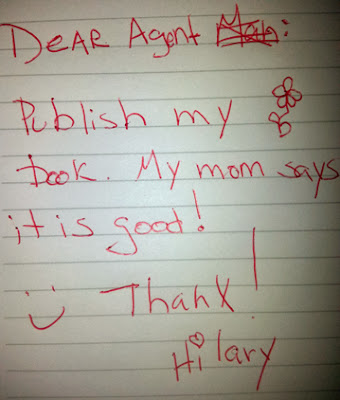 Dear Agent Man:
Publish my
book. My mom says
it is good!
:) Thanx!
Hilary